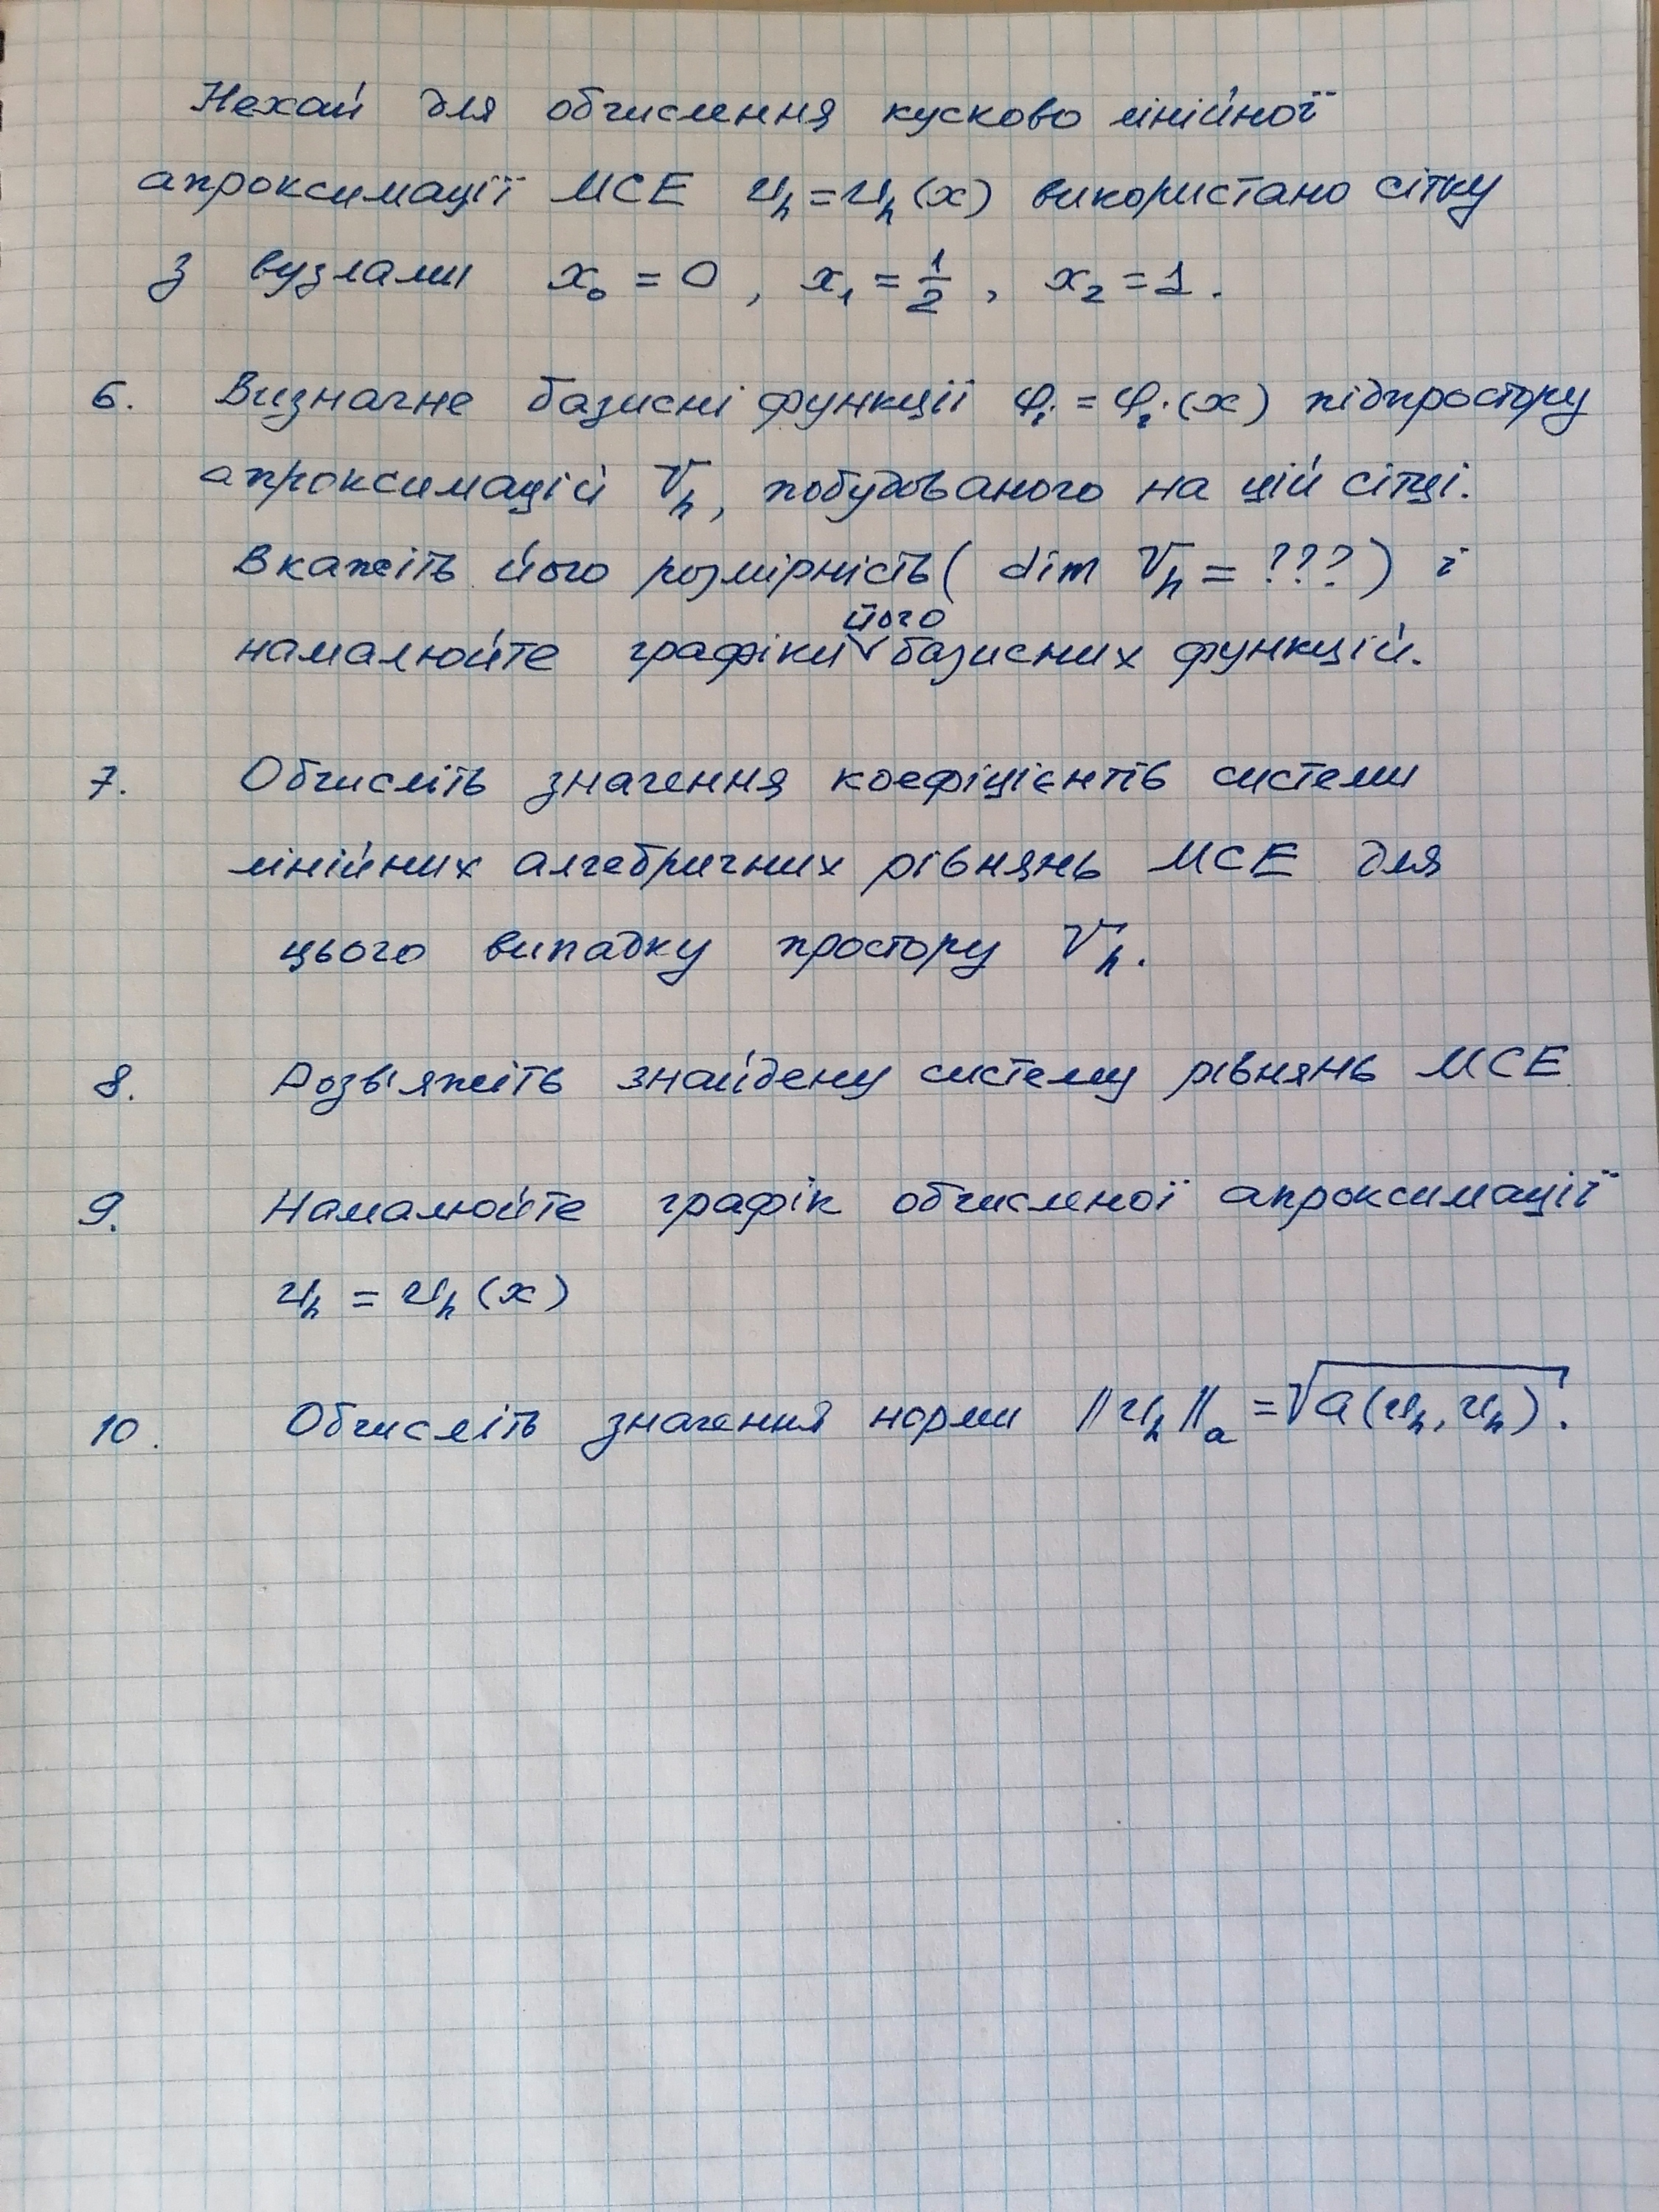 Нехай для обчислення кусково лінійної
апроксимації МСЕ u_h = u_h(x) використано сітку
з вузлами x₀ = 0, x₁ = 1/2, x₂ = 1.
6. Визначне базисні функції φᵢ = φᵢ(x) підпростору
апроксимацій V_h, побудованого на цій сітці.
Вкажіть його розмірність (dim V_h = ???) і
намалюйте графіки його базисних функцій.
7. Обчисліть значення коефіцієнтів системи
лінійних алгебричних рівнянь МСЕ для
цього випадку простору V_h.
8. Розв'яжіть знайдену систему рівнянь МСЕ
9. Намалюйте графік обчисленої апроксимації
u_h = u_h(x)
10. Обчисліть значення норми ||u_h||_a = √a(u_h, u_h).